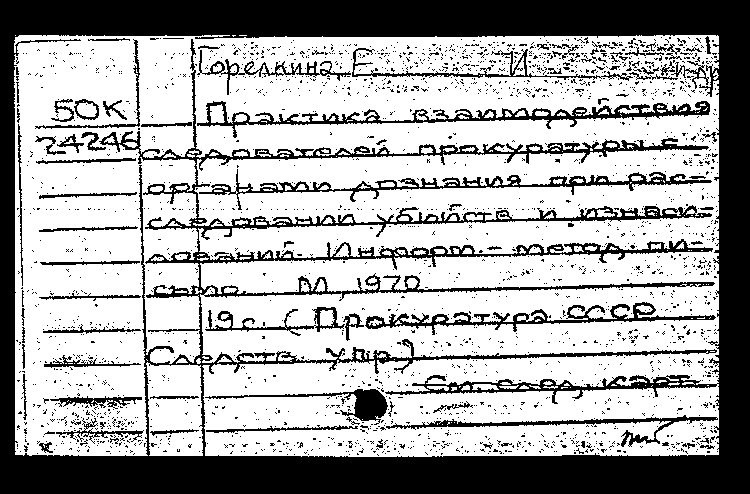 Горелкина, Е. И. и др
50К Практика взаимодействия
24246 следователей прокуратуры с
органами дознания при рас-
следовании убийств и изнаси-
лований. Информ.-метод. пи-
сьмо. М., 1970
19 с. (Прокуратура СССР
Следств. упр.)
См. след. карт.